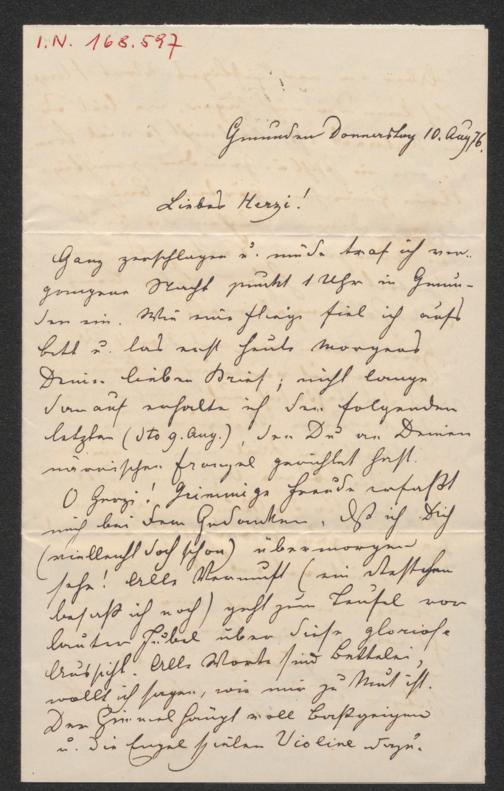 I.N. 168.597
Gmunden Donnerstag 10. Aug 76.
Liebes Herzi!
Ganz zerschlagen u. müde traf ich ver-
gangene Nacht punkt 1 Uhr in Gmun-
den ein. Wie eine Fliege fiel ich aufs
Bett u. las erst heute Morgens
Deinen lieben Brief; nicht lange
darauf erhalte ich den folgenden
letzten (dto 9. Aug.), den Du an Deinen
närrischen Franzel gerichtet hast.
O Herzi! Grimmige Freude erfaßt
mich bei dem Gedanken, daß ich Dich
(vielleicht doch schon) übermorgen
sehe! Alle Vernunft (ein Restchen
besaß ich noch) geht zum Teufel vor
lauter Jubel über diese gloriose
Aussicht. Alle Worte sind Bettelei,
wollt ich sagen, wie mir zu Mut ist.
Der Himmel hängt voll Baßgeigen
u. die Engel spielen Violine dazu.